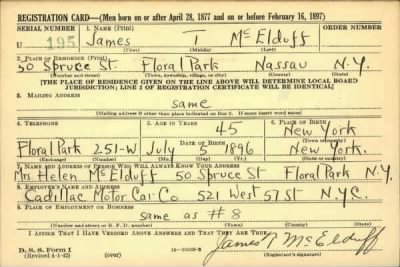 REGISTRATION CARD—(Men born on or after April 28, 1877 and on or before February 16, 1897)
SERIAL NUMBER 1. NAME (Print) ORDER NUMBER
U 195 James T McElduff
(First) (Middle) (Last)
2. PLACE OF RESIDENCE (Print)
50 Spruce St. Floral Park Nassau N.Y.
(Number and street) (Town, township, village, or city) (County) (State)
[THE PLACE OF RESIDENCE GIVEN ON THE LINE ABOVE WILL DETERMINE LOCAL BOARD
JURISDICTION; LINE 2 OF REGISTRATION CERTIFICATE WILL BE IDENTICAL]
3. MAILING ADDRESS
same
[Mailing address if other than place indicated on line 2. If same insert word same]
4. TELEPHONE 5. AGE IN YEARS 6. PLACE OF BIRTH
45 New York
(Town or county)
DATE OF BIRTH
Floral Park 251-W July 5 1896 New York.
(Exchange) (Number) (Mo.) (Day) (Yr.) (State or country)
7. NAME AND ADDRESS OF PERSON WHO WILL ALWAYS KNOW YOUR ADDRESS
Mrs. Helen McElduff 50 Spruce St Floral Park N.Y.
8. EMPLOYER'S NAME AND ADDRESS
Cadillac Motor Car Co 521 West 57 St N.Y.C.
9. PLACE OF EMPLOYMENT OR BUSINESS
same as #8
(Number and street or R. F. D. number) (Town) (County) (State)
I AFFIRM THAT I HAVE VERIFIED ABOVE ANSWERS AND THAT THEY ARE TRUE.
D. S. S. Form 1
(Revised 4-1-42) (over)
James T McElduff
(Registrant's signature)